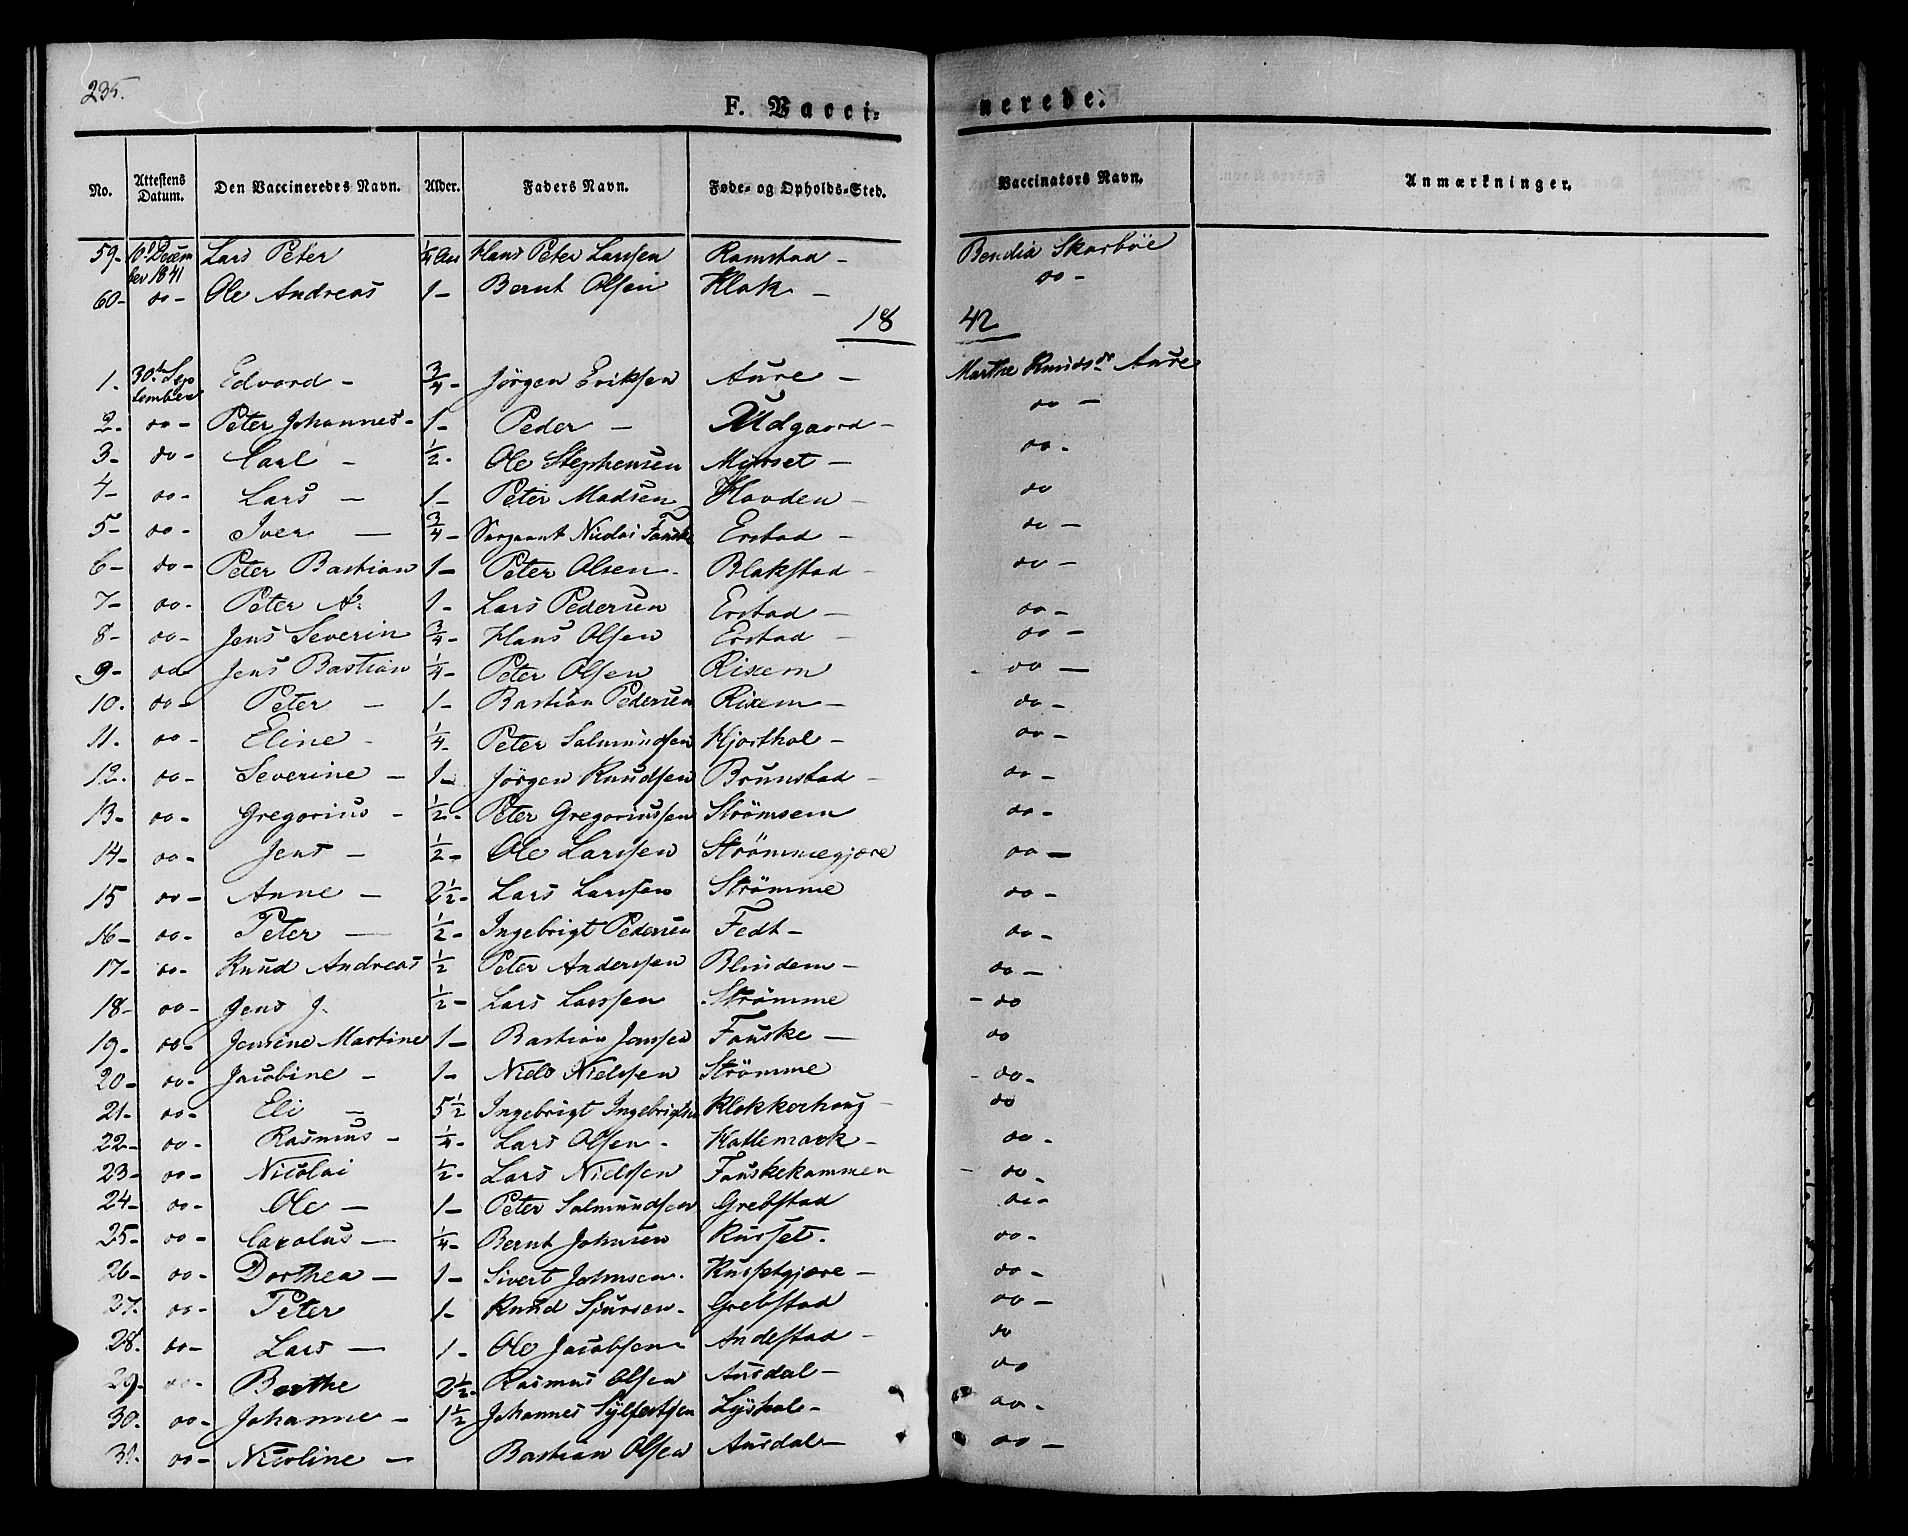 235.
F. Vacci- nerede.
No. Attestens Datum. Den Vaccineredes Navn. Alder. Faders Navn. Føde- og Opholds-Sted. Vaccinators Navn. Anmærkninger.
59- 10de Decem- Lars Peter 1/4 Aar Hans Peter Larssen Ramstad - Bendia Skarbøe
ber 1841
60- do - Ole Andreas 1- Bernt Olsen Klok - do -
18 42
1. 30te Sep Edvard - 3/4- Jörgen Eriksen Aure - Marthe Knudsdr Aure
tember
2. do - Peter Johannes- 1- Peder - Udgaard - do -
3- do - Carl - 1/2- Ole Stephensen Myrset - do -
4- do - Lars - 1- Peter Madsen Hovden - do
5- do - Iver - 3/4- Sergeant Nicolai Fauske Erstad - do -
6- do - Peter Bastian 1- Peter Olsen - Blakstad - do -
7- do - Peter A. 1- Lars Pedersen Erstad - do -
8- do - Jens Severin 3/4- Hans Olsen Erstad - do -
9- do Jens Bastian 1/4- Peter Olsen Rixem - do -
10. do - Peter - 1- Bastian Pedersen Rixem - do -
11. do - Eline - 1/4- Peter Salmundsen Hjorthol - do -
12. do - Severine - 1- Jörgen Knudsen Brunstad - do -
13- do - Gregorius - 1/2- Peter Gregoriussen Strömsem do -
14- do - Jens - 1/2- Ole Larssen Strömmegjære do -
15 do - Anne - 2 1/2- Lars Larssen Strömme do -
16- do - Peter - 1/2- Ingebrigt Pedersen Fedt - do -
17- do - Knud Andreas 1/2 Peter Anderssen Blindem - do -
18- do - Jens J. 1/2- Lars Larssen Strömme - do
19- do - Jensine Martine 1- Bastian Jenssen Fauske - do
20- do - Jacobine - 1- Niels Nielssen Strömme - do -
21- do - Eli - 5 1/2 Ingebrigt Ingebrigtsen Klokkerhaug - do
22- do - Rasmus - 1/4- Lars Olsen - Kattemark - do -
23- do - Nicolai 1/2- Lars Nielssen Fauskekammen - do -
24- do - Ole - 1- Peter Salmundsen Grebstad do -
25- do - Carolus - 1/4- Bernt Johnsen Russet. do -
26- do - Dorthea - 1- Sivert Johnsen. Russetgjære - do -
37. do - Peter 1- Knud Sjursen - Grebstad do -
28. do - Lars - 1- Ole Jacobsen - Andestad - do
29- do - Berthe 2 1/2- Rasmus Olsen Ausdal - do
30. do - Johanne - 1 1/2 Johannes Sylfestsen Lyshol - do -
31. do - Nicoline - Bastian Olsen Ausdal - do -